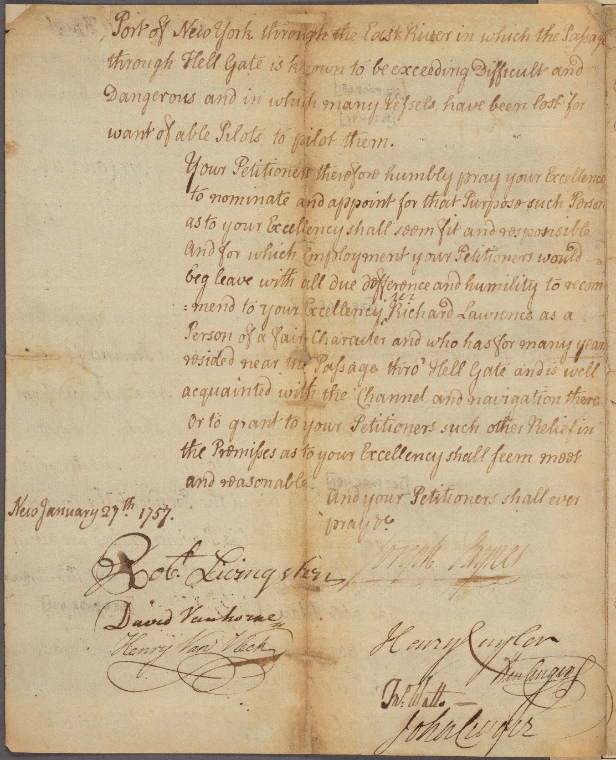 Port of New York through the East River in which the Passage
through Hell Gate is known to be exceeding Difficult and
Dangerous and in which many Vessels have been lost for
want of able Pilots to pilot them.
Your Petitioners therefore humbly pray your Excellency
to nominate and appoint for that Purpose such Person
as to your Excellency shall seem fit and responsible
And for which Employment your Petitioners would
beg leave with all due difference and humility to recom
:mend to your Excellency Richard Lawrence as a
Person of a fair Character and who has for many years
resided near the Passage thro' Hell Gate and is well
acquainted with the Channel and navigation there
Or to grant to your Petitioners such other Relief in
the Premisses as to your Excellency shall seem meet
and reasonable.
And your Petitioners shall ever
pray &c
New January 27th 1757.
Robt. Livingston
Joseph Haynes
David Vanhorne
Henry Van Vleck
Henry Cuyler
Cruger
Jno. Watts
John Cruger